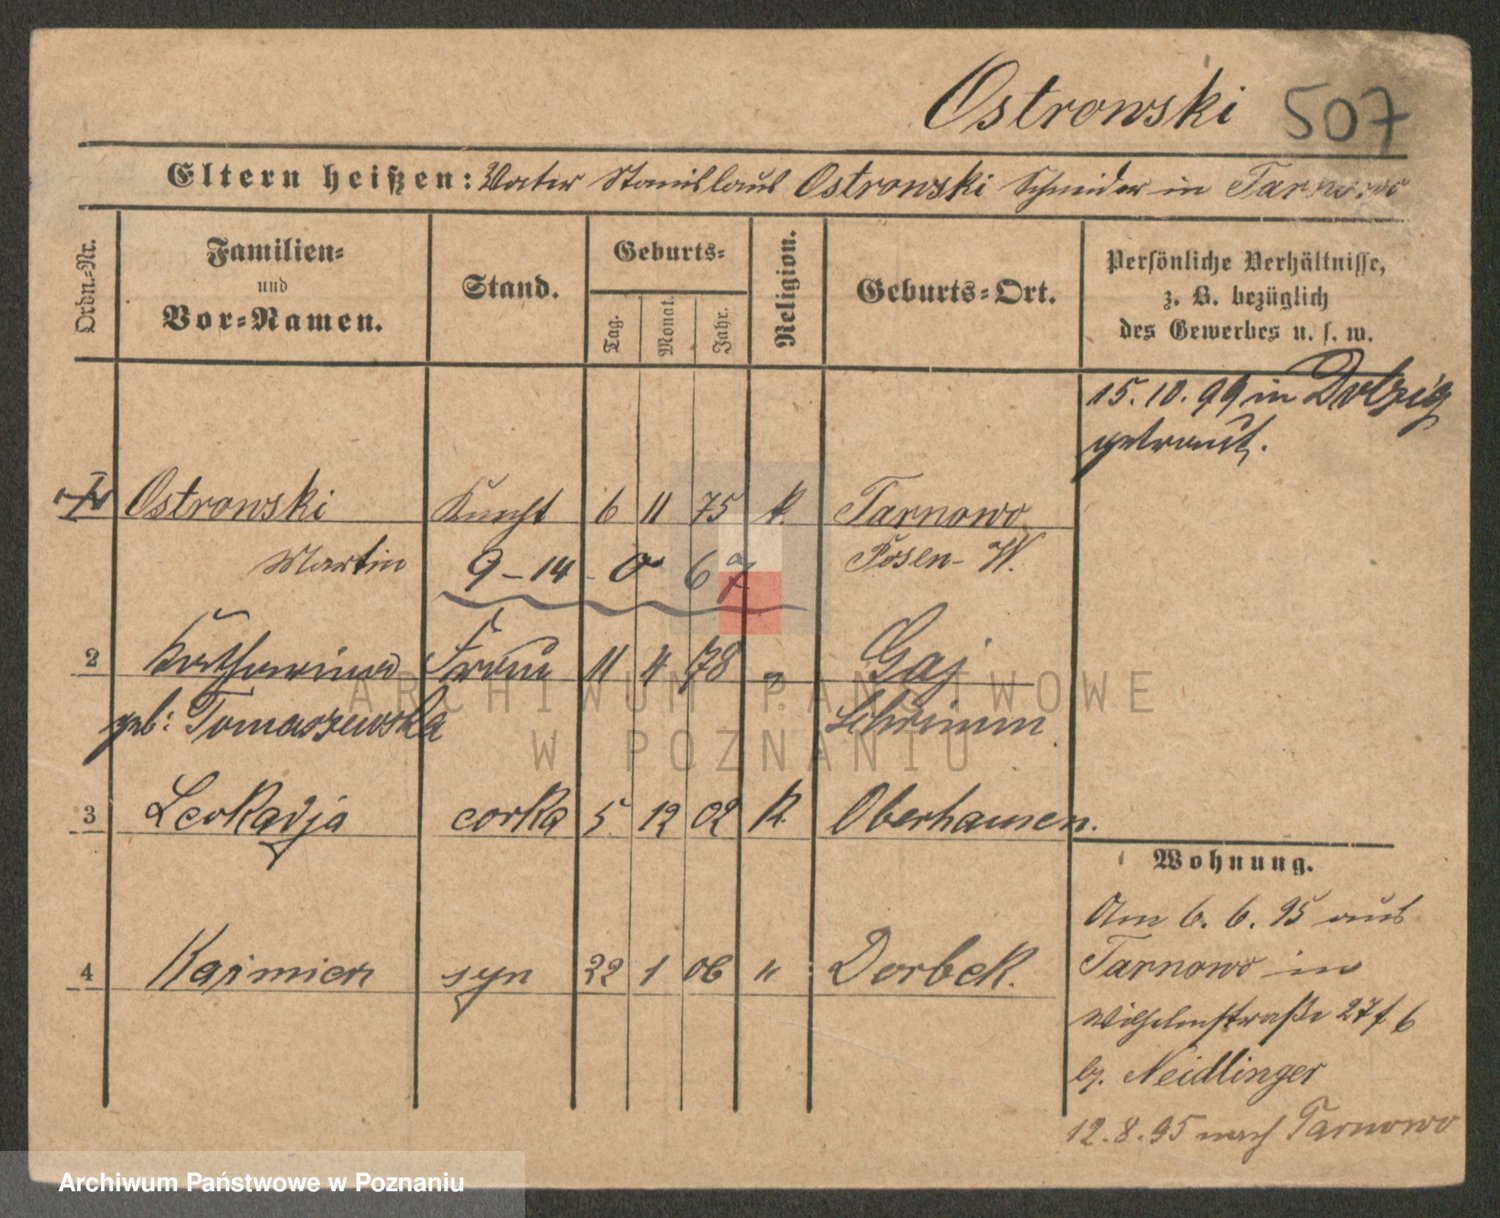 Ostrowski 507
Eltern heißen: Vater Stanislaus Ostrowski Schneider in Tarnowo
Ordn.-Nr.
Familien-
und
Vor-Namen.
Stand.
Geburts-
Tag.
Monat.
Jahr.
Religion.
Geburts-Ort.
Persönliche Verhältnisse,
z. B. bezüglich
des Gewerbes u. s. w.
15.10.99 in Dolzig
getraut.
Ostrowski Knecht 6 11 75 k. Tarnowo
Martin 9-14-0 67 Posen-W.
2 Katharina Frau 11 4 78 " Gaj
geb: Tomaszewska Schrimm
3 Leokadja corka 5 12 02 k Oberhausen.
Wohnung.
Am 6.6.95 aus
4 Kazimierz syn 22 1 06 " Dorbek.
Tarnowo in
Wilhelmstraße 27
b. Neidlinger
12.8.95 nach Tarnowo
ARCHIWUM PAŃSTWOWE
W POZNANIU
Archiwum Państwowe w Poznaniu